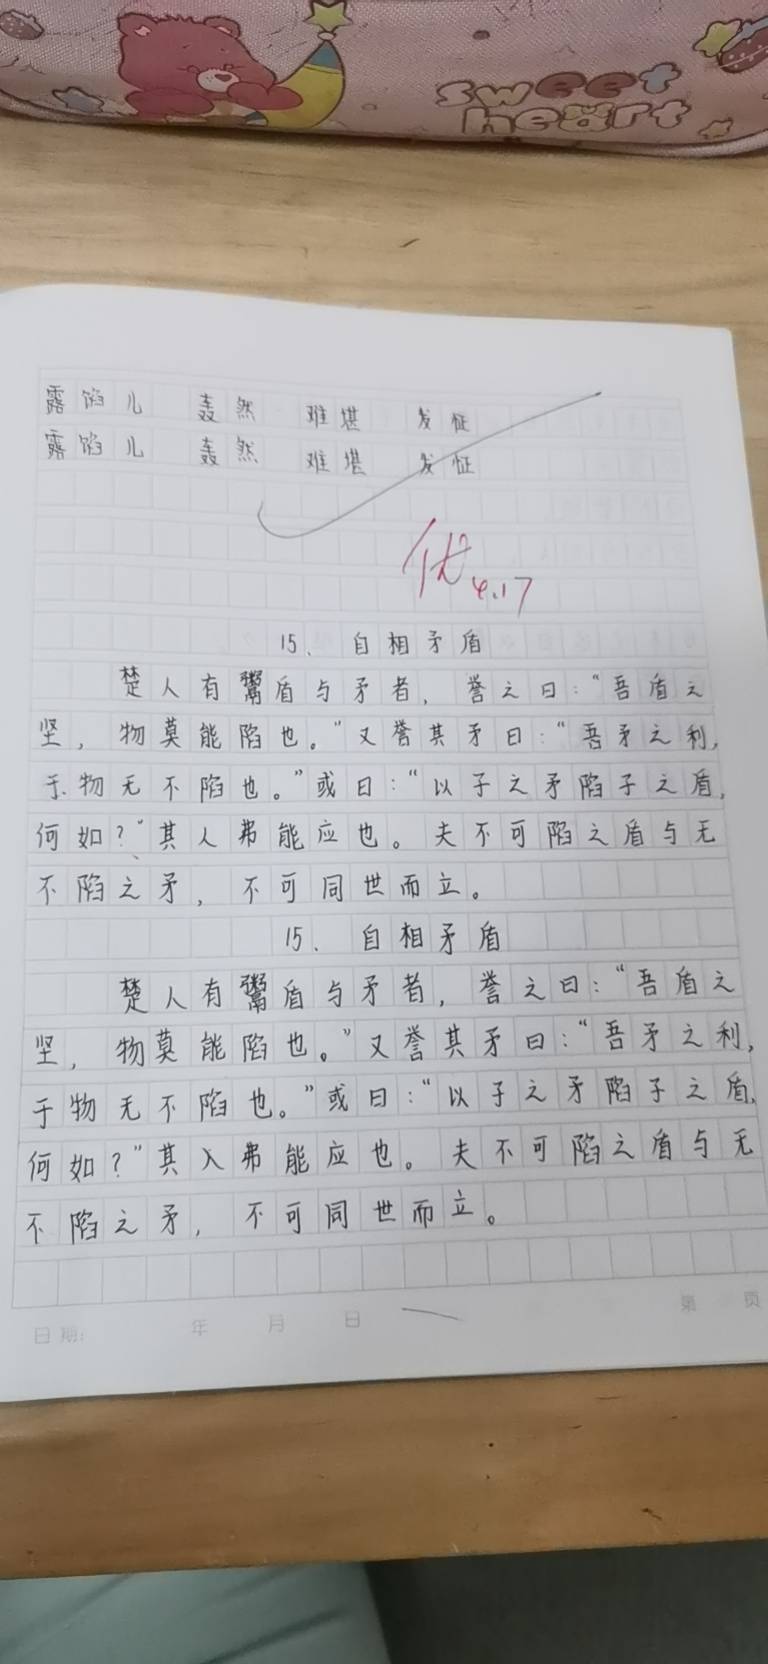 sweet
heart
露馅儿 轰然 难堪 发怔
露馅儿 轰然 难堪 发怔
优 4.17
15. 自相矛盾
楚人有鬻盾与矛者，誉之曰：“吾盾之
坚，物莫能陷也。”又誉其矛曰：“吾矛之利，
于物无不陷也。”或曰：“以子之矛陷子之盾，
何如？”其人弗能应也。夫不可陷之盾与无
不陷之矛，不可同世而立。
15. 自相矛盾
楚人有鬻盾与矛者，誉之曰：“吾盾之
坚，物莫能陷也。”又誉其矛曰：“吾矛之利，
于物无不陷也。”或曰：“以子之矛陷子之盾，
何如？”其入弗能应也。夫不可陷之盾与无
不陷之矛，不可同世而立。
日期： 年 月 日 第 页